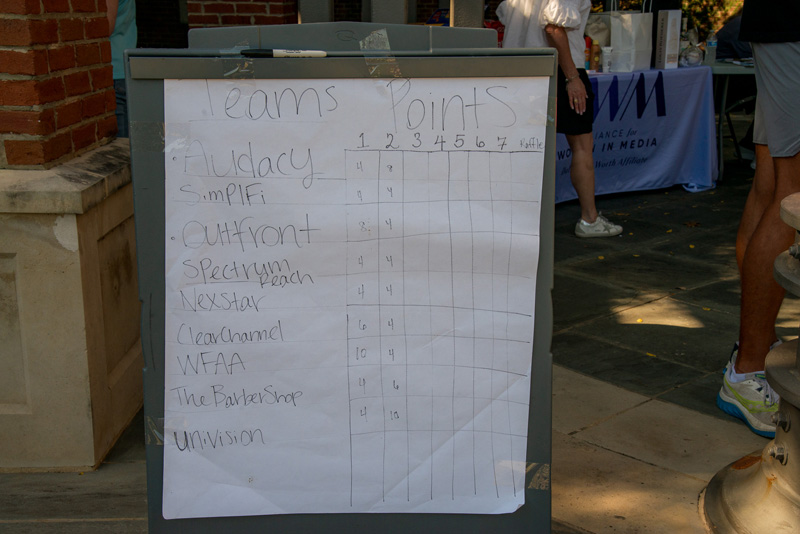 Teams Points
1 2 3 4 5 6 7 Raffle
Audacy 4 8
SimplFi 4
Outfront 8 4
Spectrum Reach 4 4
NexStar 4 4
ClearChannel 6 4
WFAA 10 4
The BarberShop 4 6
Univision 4 10
WM
LIANCE for
WOMEN IN MEDIA
Worth Affiliate